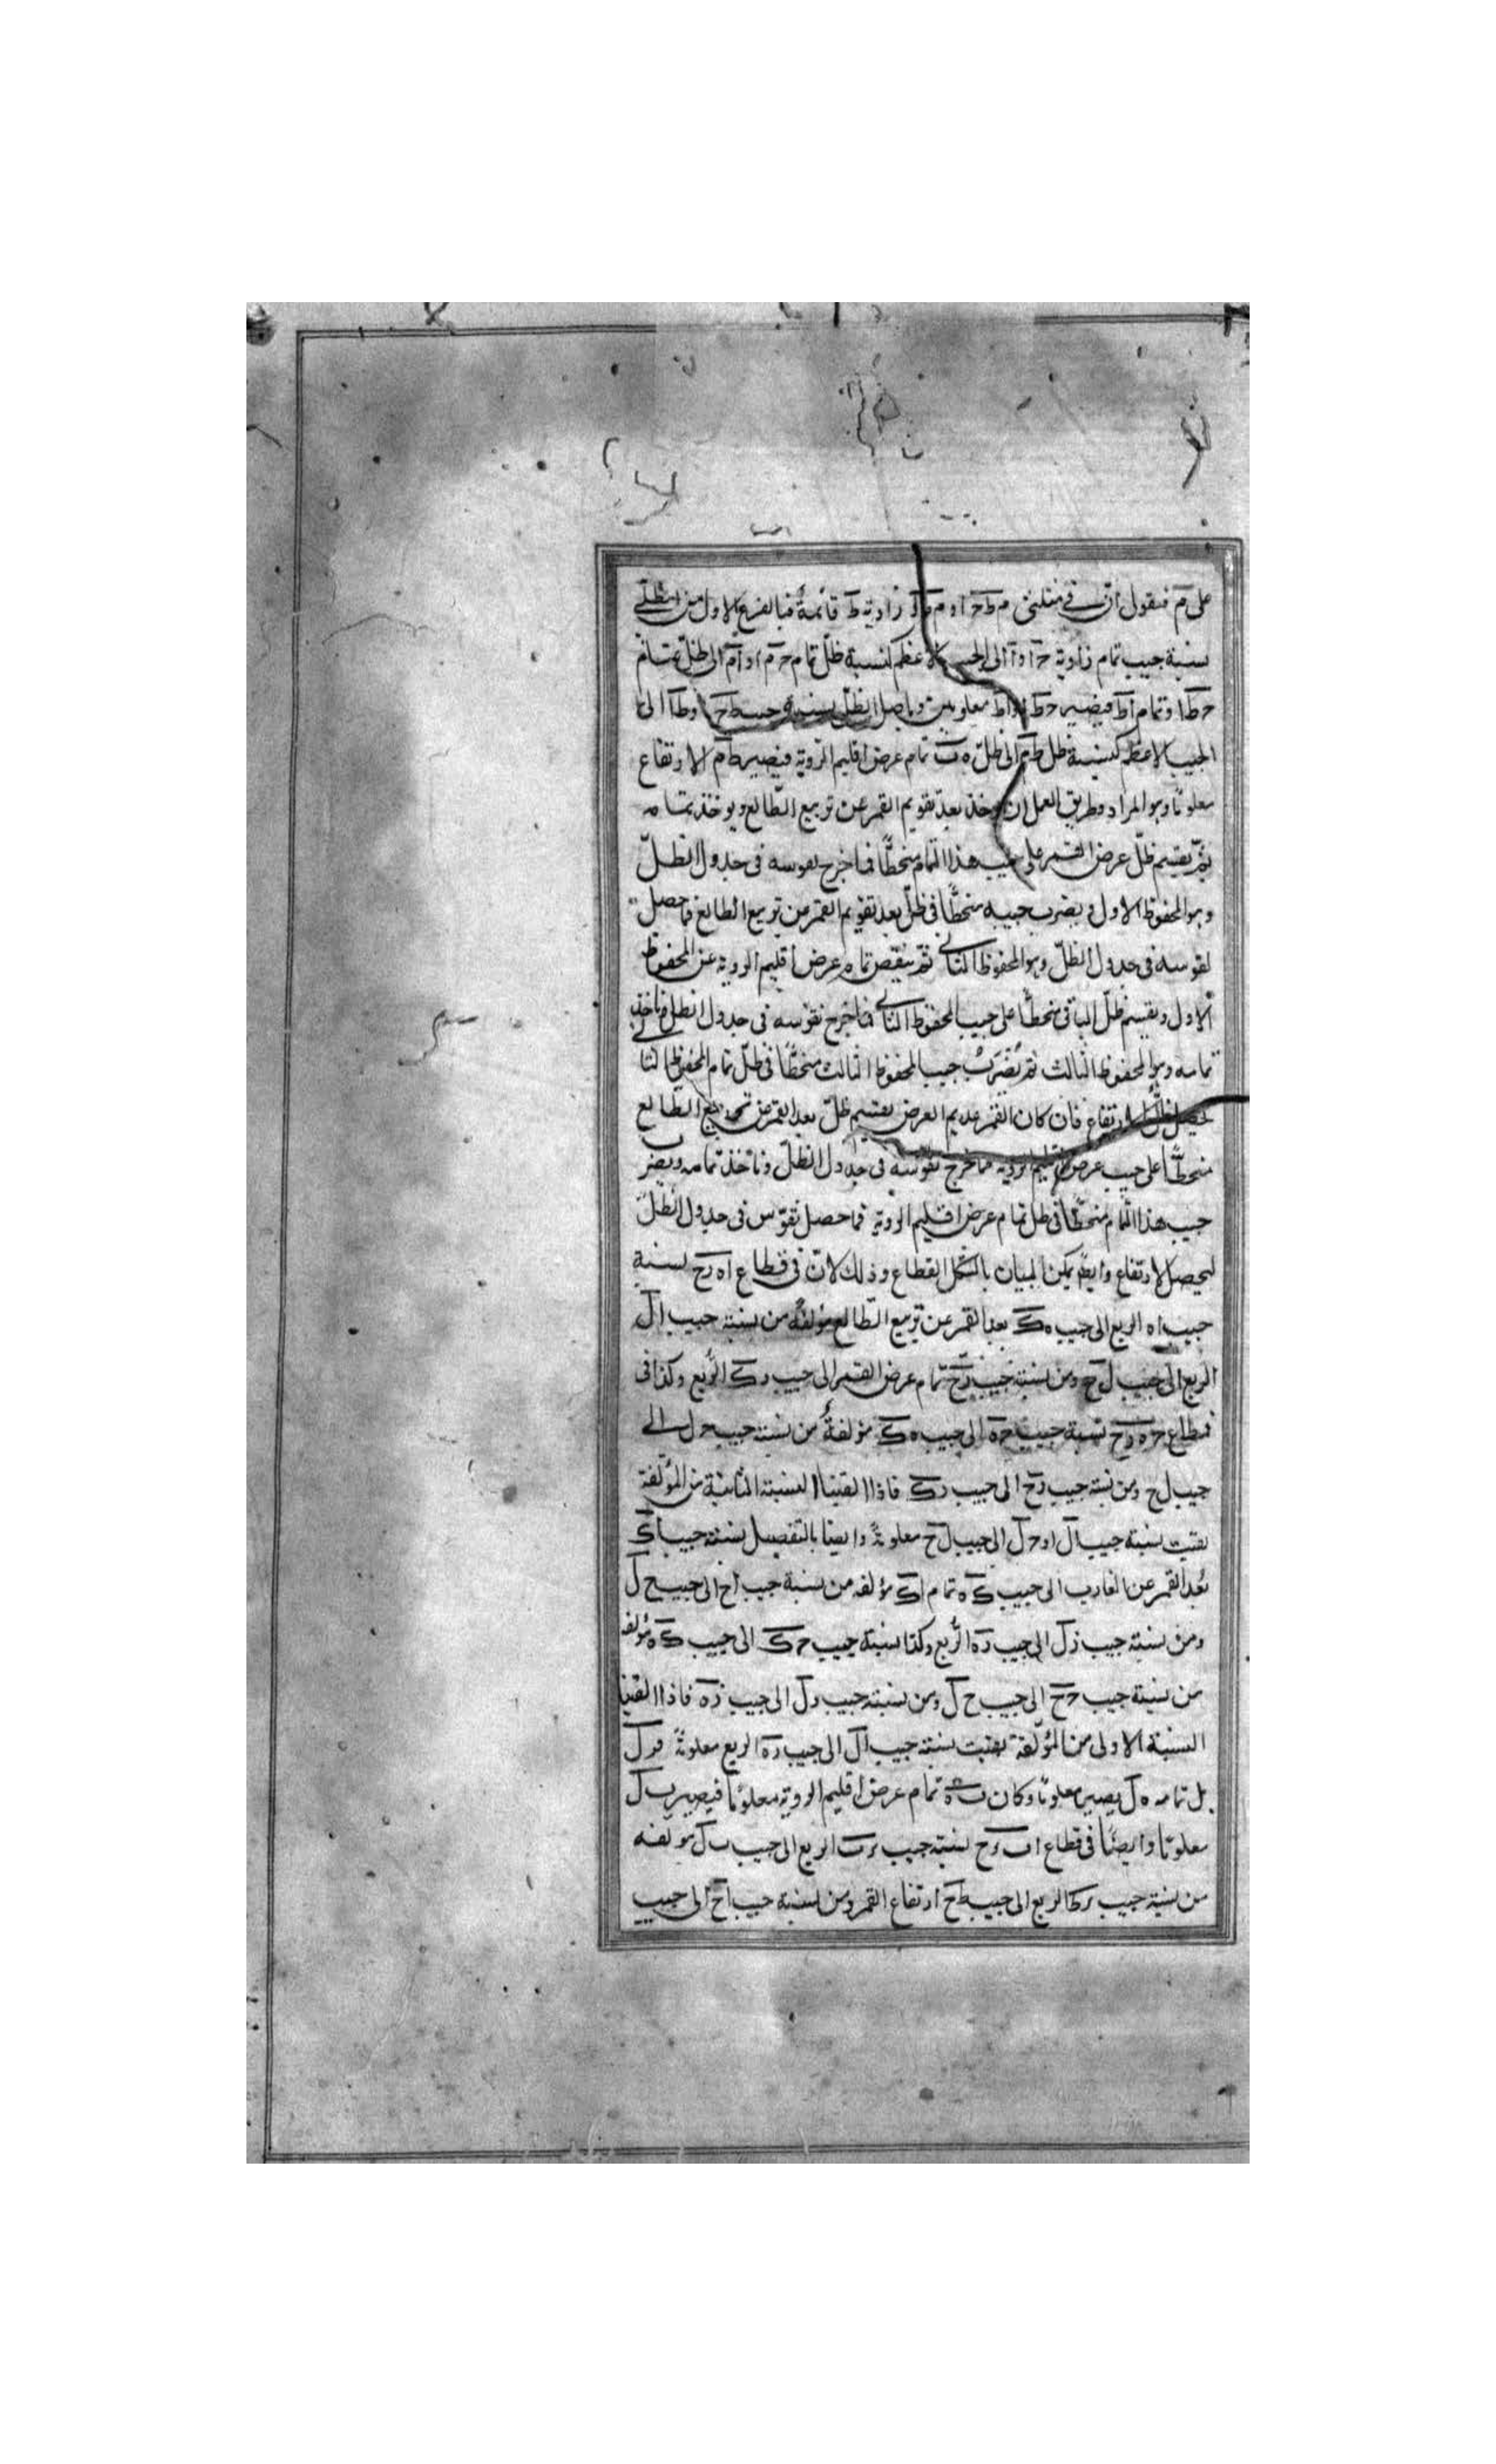 على م فنقول ان في مثلثي م ط ح ا و م زاوية ط قائمة فبالفرع الاول من الظلي
نسبة جيب تمام زاوية ح او آ الى الجيب الاعظم كنسبة ظل تمام ح م او آم الى ظل تمام
ح ط او تمام اط فيصير ح ط او اط معلومين وباصل الظل نسبة جيب ط ح او ط آ الى
الجيب الاعظم كنسبة ظل ط م الى ظل ه ب تمام عرض اقليم الروية فيصير ط م الارتفاع
معلوما وهو المراد وطريق العمل ان يوخذ بعد تقويم القمر عن تربيع الطالع ويوخذ تمامه
ثم يقسم ظل عرض القمر على جيب هذا التمام منحطا فما خرج نقوسه في جدول الظل
وهو المحفوظ الاول ويضرب جيبه منحطا في ظل بعد تقويم القمر من تربيع الطالع فما حصل
نقوسه في جدول الظل وهو المحفوظ الثاني ثم ينقص تمام عرض اقليم الروية عن المحفوظ
الاول ويقسم ظل الباقي منحطا على جيب المحفوظ الثاني فما خرج نقوسه في جدول الظل فناخذ
تمامه وهو المحفوظ الثالث ثم يضرب جيب المحفوظ الثالث منحطا في ظل تمام المحفوظ الثاني
يحصل ظل الارتفاع فان كان القمر عديم العرض يقسم ظل بعد القمر من تربيع الطالع
منحطا على جيب عرض اقليم الروية فما خرج نقوسه في جدول الظل وناخذ تمامه ويضرب
جيب هذا التمام منحطا في ظل تمام عرض اقليم الروية فما حصل نقوس في جدول الظل
ليحصل الارتفاع وايضا يمكن البيان بالشكل القطاع وذلك لان في قطاع اه رح نسبة
جيب اه الربع الى جيب ه ك بعد القمر عن تربيع الطالع مؤلفة من نسبة جيب ال
الربع الى جيب ل ح ومن نسبة جيب رح تمام عرض القمر الى جيب رك الربع وكذا في
قطاع ح ه رح نسبة جيب ح ه الى جيب ه ك مؤلفة من نسبة جيب ح ل الى
جيب ل ح ومن نسبة جيب رح الى جيب رك فاذا القينا النسبة الثانية من المؤلفة
بقيت نسبة جيب ال او ح ل الى جيب ل ح معلومة وايضا بالتفصيل نسبة جيب اك
بعد القمر عن الغارب الى جيب ك ه تمام اك مؤلفه من نسبة جيب اح الى جيب ح ل
ومن نسبة جيب زل الى جيب ره الربع وكذا نسبة جيب ح ك الى جيب ك ه مؤلفة
من نسبة جيب ح ح الى جيب ح ل ومن نسبة جيب رل الى جيب زه فاذا القينا
النسبة الاولى من المؤلفة بقيت نسبة جيب ال الى جيب ره الربع معلومة فرل
بل تمامه ه ل يصير معلوما وكان ب ه تمام عرض اقليم الروية معلوما فيصير ب ل
معلوما وايضا في قطاع اب رح نسبة جيب رب الربع الى جيب ب ل مؤلفه
من نسبة جيب رط الربع الى جيب ط ح ارتفاع القمر ومن نسبة جيب اح الى جيب